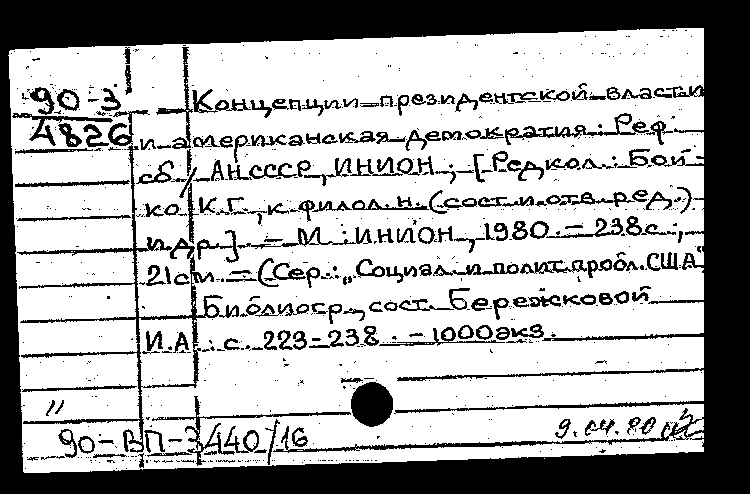 90-3
4826
Концепции президентской власти
и американская демократия: Реф.
сб / АН СССР, ИНИОН; [Редкол.: Бой-
ко К.Г., к филол. н. (сост и отв ред.)
и др.] – М.: ИНИОН, 1980. – 238с.;
21см – (Сер.: „Социал и полит. пробл. США"
Библиогр., сост. Бережковой
И.А : с. 223-238. – 1000экз.
"
90-ВП-3440/16
9.04.80